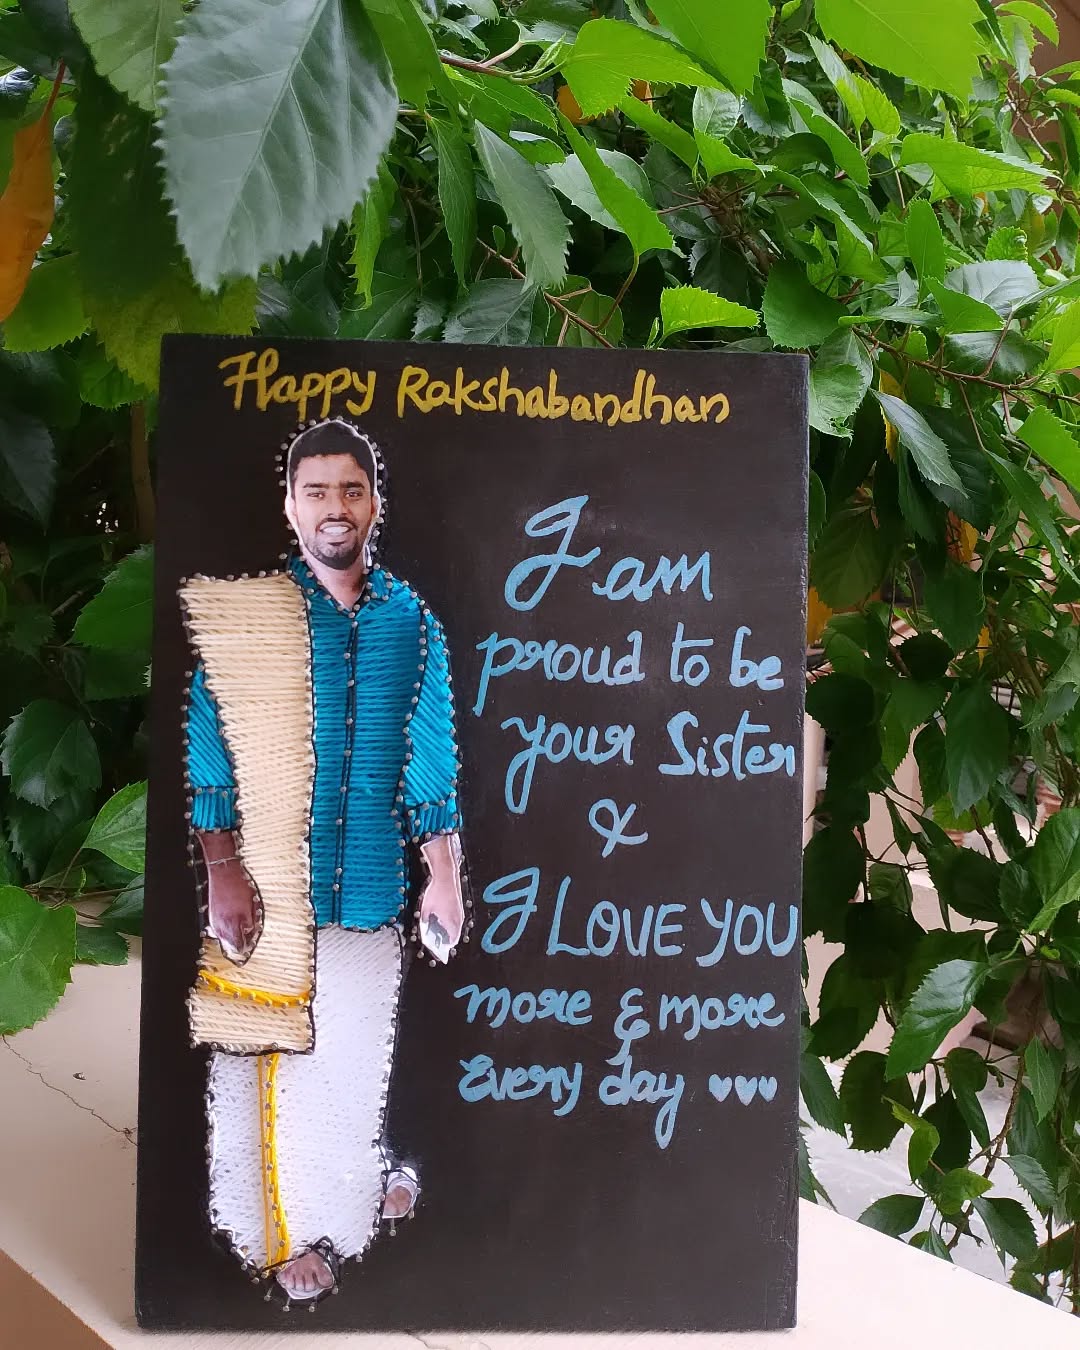 Happy Rakshabandhan
I am
proud to be
your Sister
&
I LOVE YOU
more & more
Every day ♥♥♥